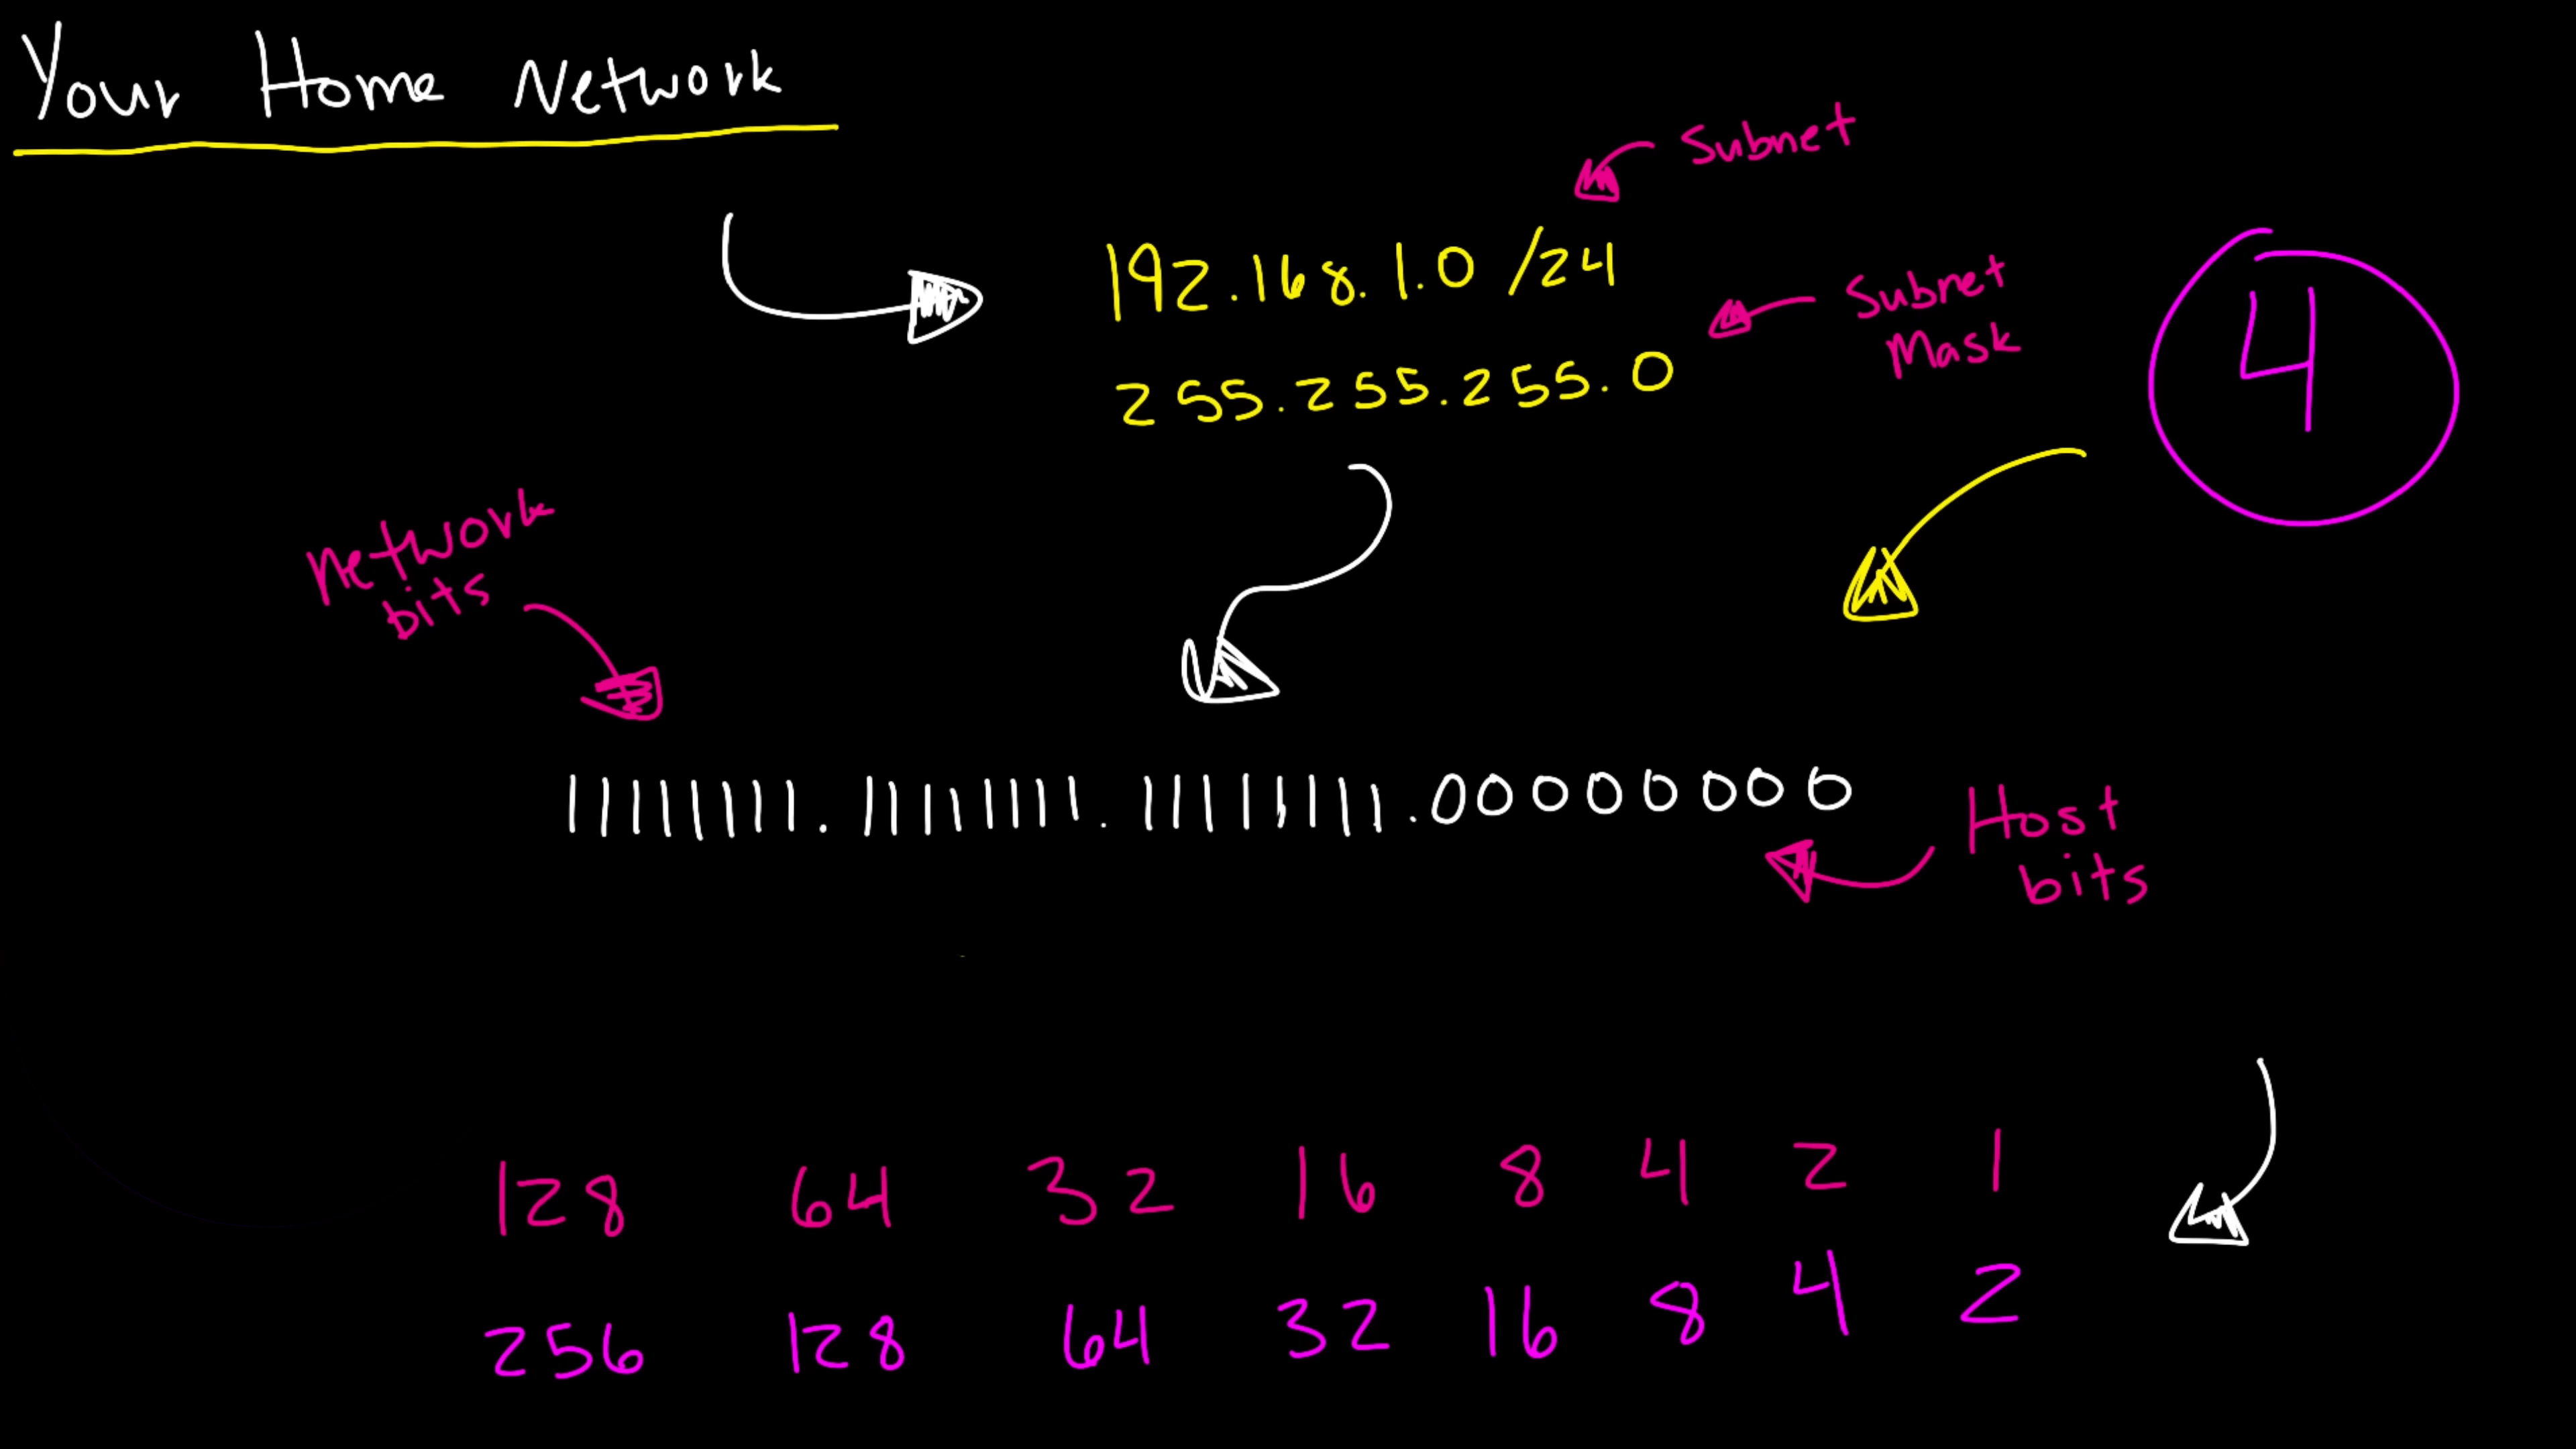 Your Home Network
Subnet
192.168.1.0 /24
Subnet
Mask
255.255.255.0
4
Network
bits
11111111.11111111.11111111.00000000
Host
bits
128 64 32 16 8 4 2 1
256 128 64 32 16 8 4 2